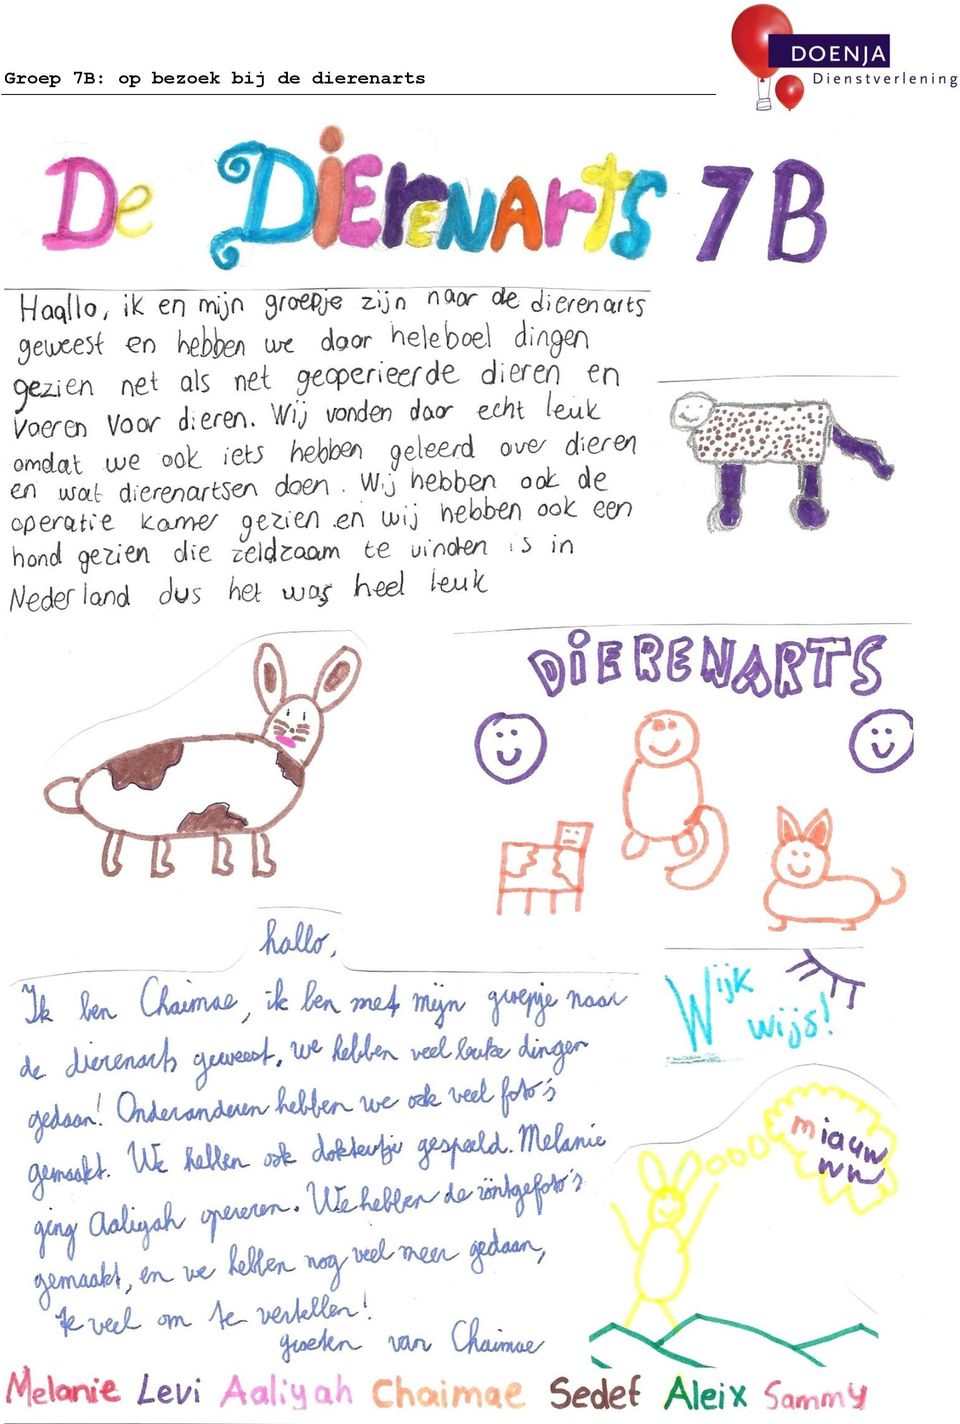 Groep 7B: op bezoek bij de dierenarts
DOENJA
Dienstverlening
De DiErENArts 7B
Haallo, ik en mijn groepje zijn naar de dierenarts
geweest en hebben we daar heleboel dingen
gezien net als net geoperieerde dieren en
Voeren Voor dieren. Wij vonden daar echt leuk
omdat we ook iets hebben geleerd over dieren
en wat dierenartsen doen. Wij hebben ook de
operatie kamer gezien en wij hebben ook een
hond gezien die zeldzaam te vinden is in
Nederland dus het was heel leuk
DiERENARTS
hallo,
Ik ben Chaimae, ik ben met mijn groepje naar
de dierenarts geweest, we hebben veel leuke dingen
gedaan! Onderanderen hebben we ook veel foto's
gemaakt. We hebben ook doktertje gespeeld. Melanie
ging Aaliyah opereren. We hebben de röntgefoto's
gemaakt, en we hebben nog veel meer gedaan,
te veel om te vertellen!
groeten van Chaimae
Wijk
wijs!
miauw
ww
Melanie Levi Aaliyah Chaimae Sedef Aleix Sammy